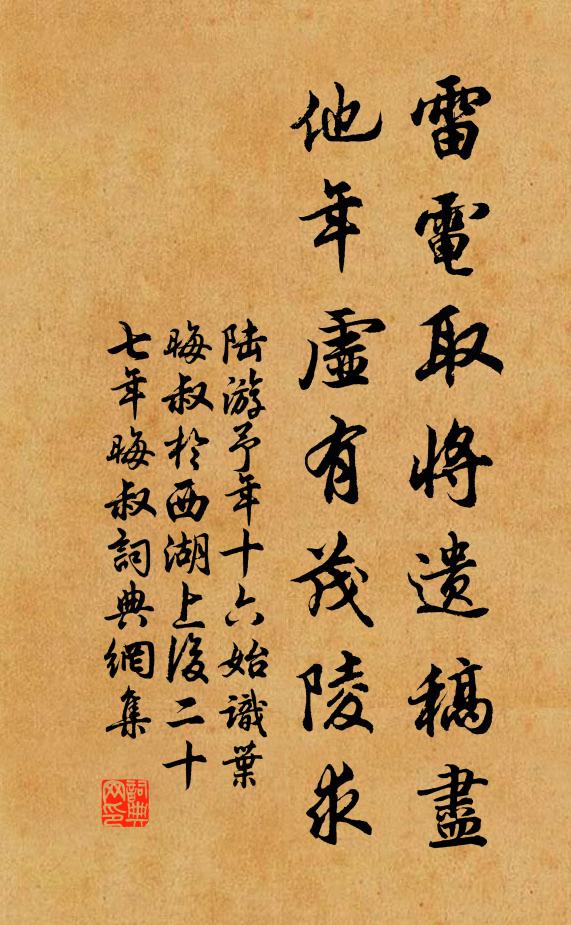 雷電取將遺稿盡
他年虛有茂陵求
陸游予年十六始識葉
晦叔於西湖上後二十
七年晦叔詞典網集
詞典
网印